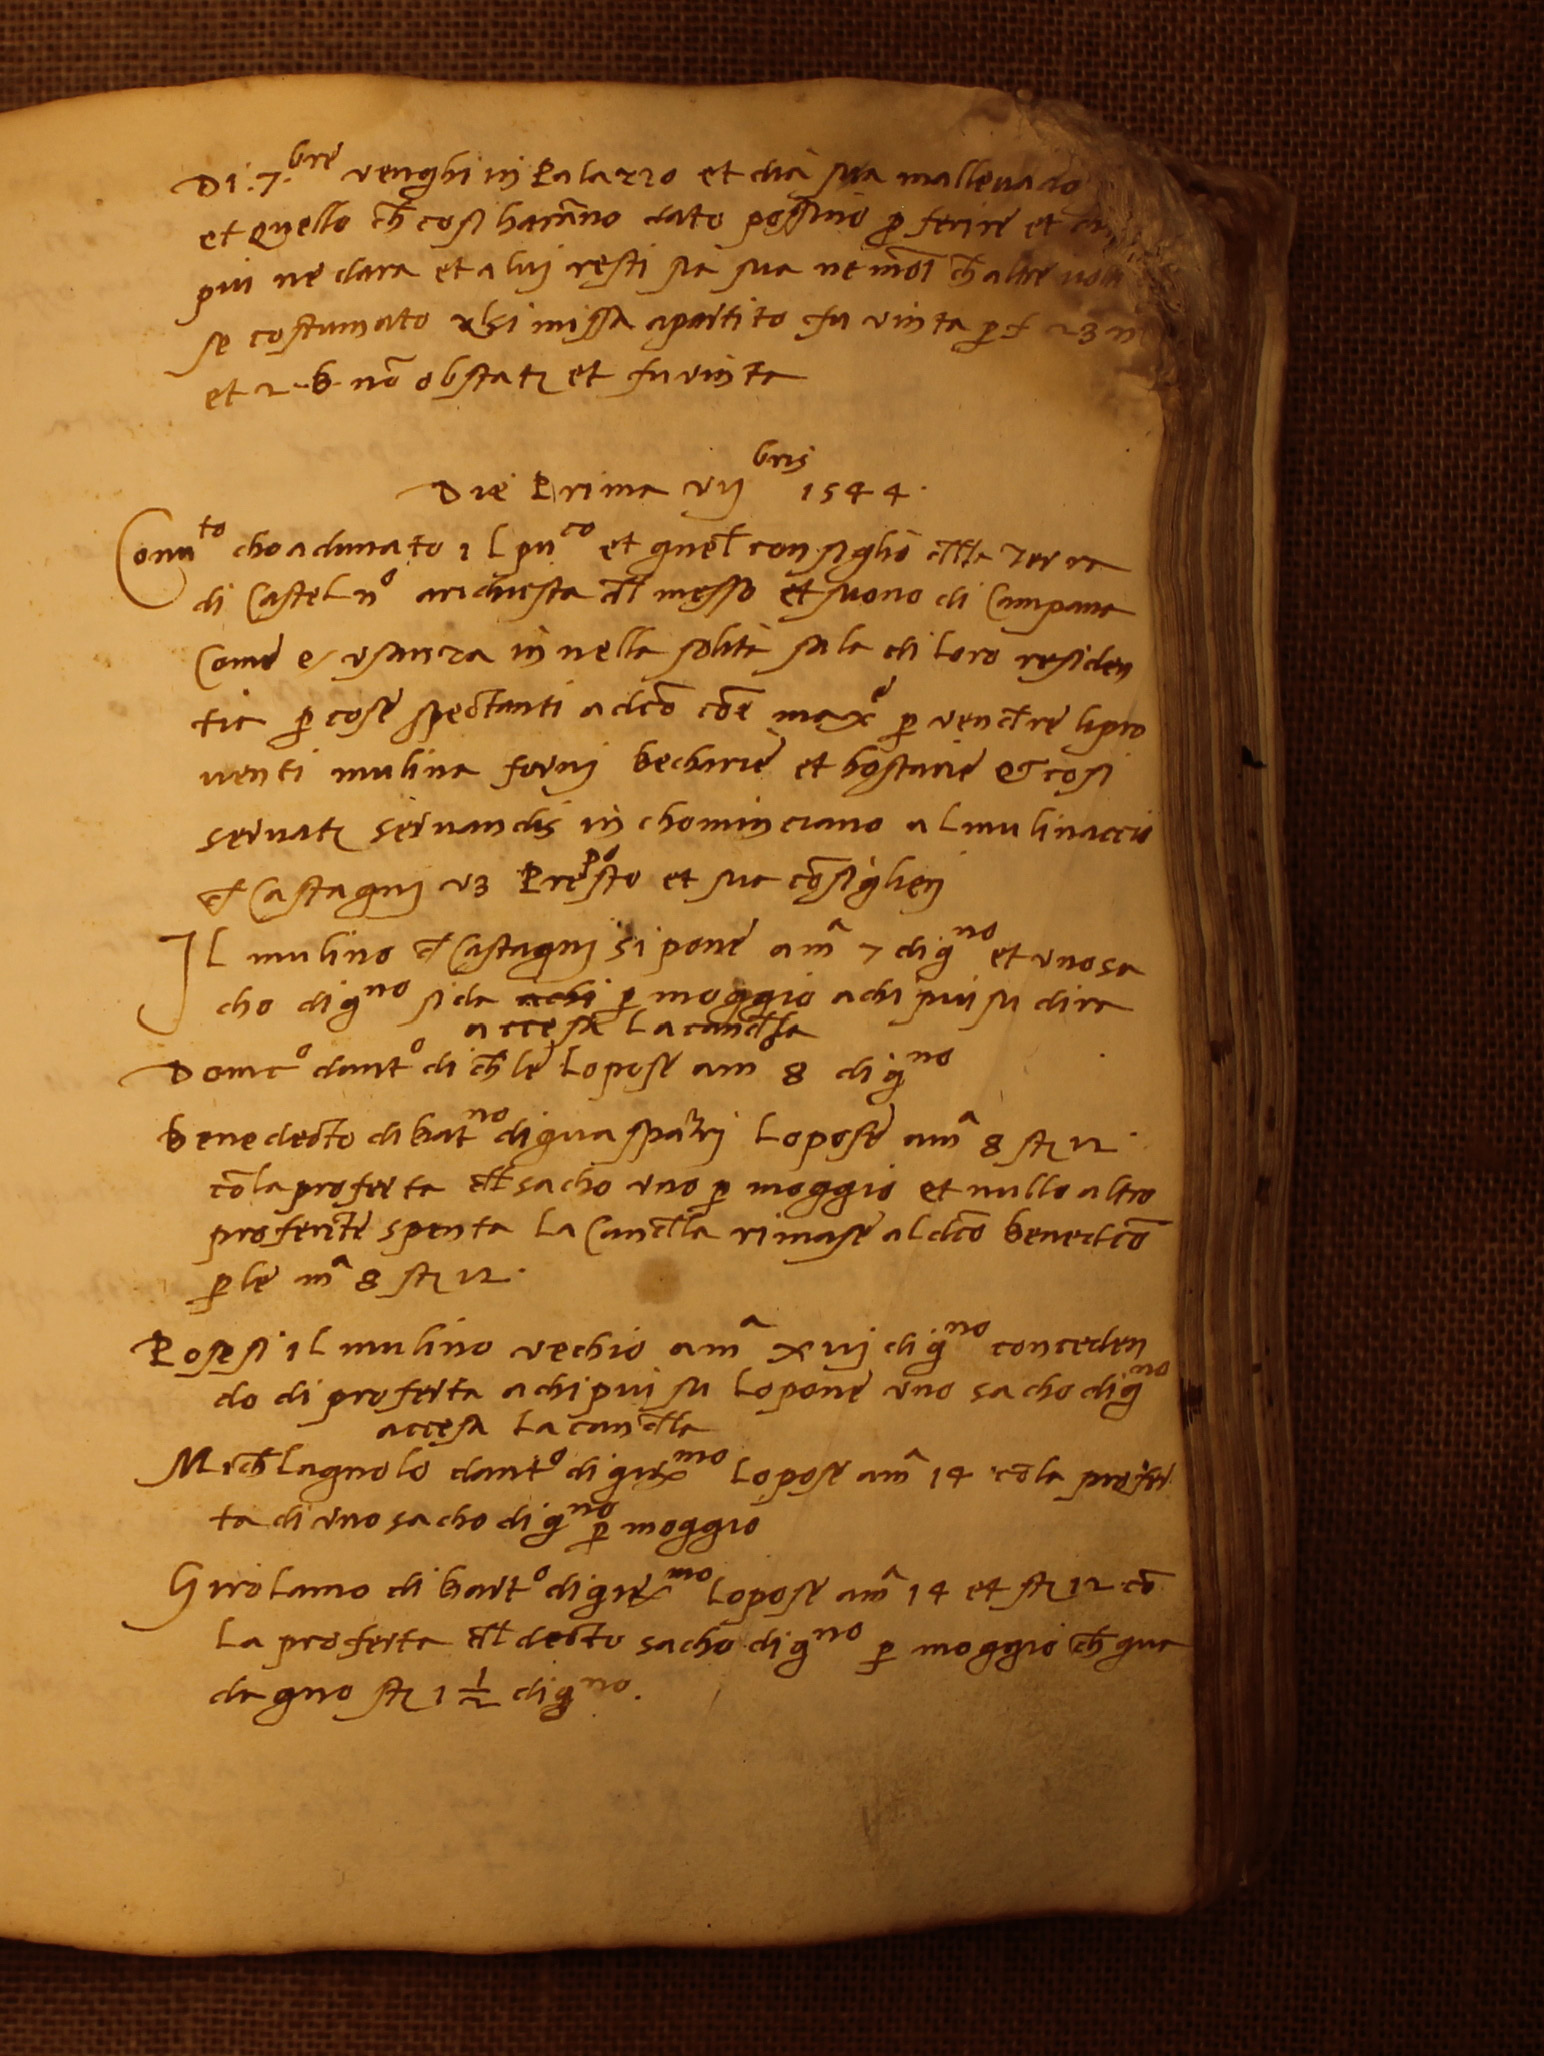 Di .7.bre venghi in Palazzo et dia sua mallevado
et quello ch̄ cosi harāno dato possino p̱ ferire et
piu ne dara et a lui resti sia sua ne mōl ch̄ altre uolte
se costumato missa apartito fu vinta p̱ f 23 n
et 2 .b. nō obstatj et fu vinta
Die Prima vijbris 1544.
Conuto choadunato il puco et gnel̄ consiglio dl̄la Terra
di Castel nº arichiesta dl̄ messo et suono di Campana
Come e usanza in nella solita sala di loro residen
tia p̱ cose spectanti adcō cōe maxe p̱ vend̄re li pro
uenti mulina fornj becharie et hostarie et cosi
seruatj seruandis in chominciano al mulinaccio
d̄ Castagnj vz Preposto et sua cōsiglierj
Il mulino d̄ Castagnj si pone a ma 7 di gno et uno sa
cho di gno si da p̱ moggio a chi piu su dira
accesa la cand̄la
Domco dantº di ch̄le lo pose a mo 8 di gno
Benedecto di batno di guasparrj lo pose a ma 8 stj 12.
cō la proferta dl̄ sacho uno p̱ moggio et nullo altro
proferēte spenta la Cand̄la rimase al dcō benedcō
p̱ le ma 8 stj 12.
Posesi il mulino vechio a ma xvij di gno conceden
do di proferta a chi piu su lo pone uno sacho di gno
accesa la cand̄la
Mich̄lagnolo dantº di giermo lo pose a ma 14 cō la profer
ta di uno sacho di gno p̱ moggio
Girolamo di bartº di giermo lo pose a ma 14 et stj 12 cō
la proferta dl̄ decto sacho di gno p̱ moggio ch̄ gua
dagno stj 1 1/2 di gno.